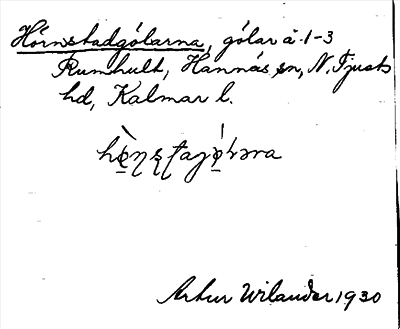 Hörnstadgölarna, gölar å 1-3
Rumhult, Hannäs sn, N. Tjusts
hd, Kalmar l.
Artur Wilander 1930